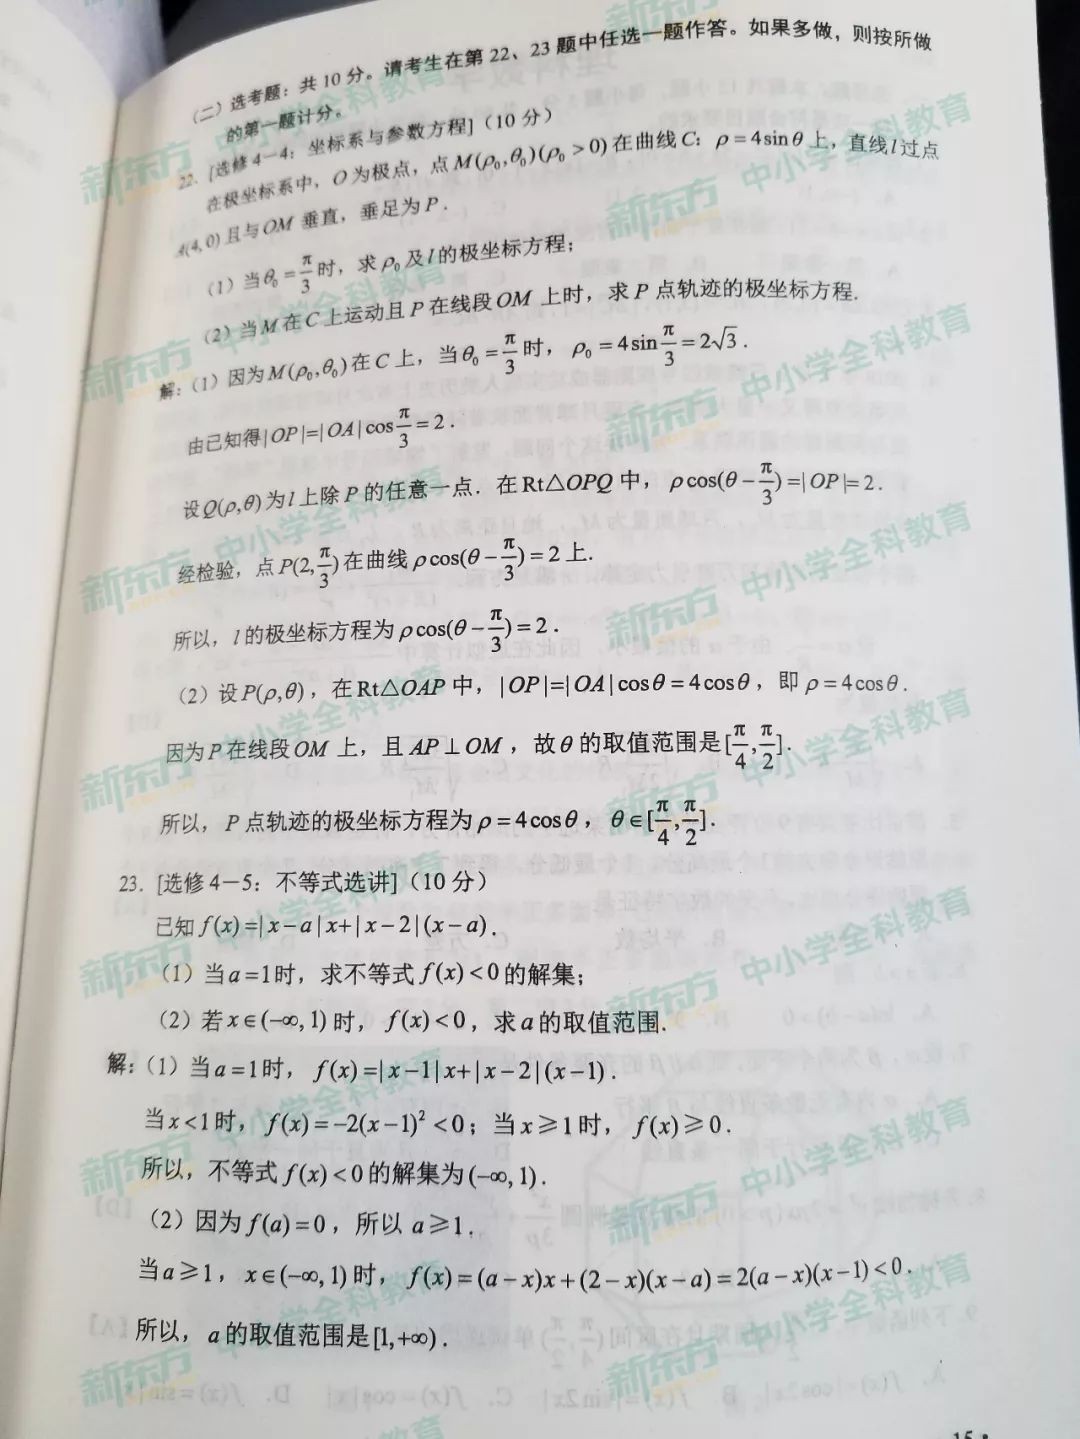 （二）选考题：共10分。请考生在第22、23题中任选一题作答。如果多做，则按所做
的第一题计分。
22. [选修4－4：坐标系与参数方程]（10分）
在极坐标系中，O为极点，点M(ρ₀,θ₀)(ρ₀>0)在曲线C：ρ=4sinθ上，直线l过点
A(4,0)且与OM垂直，垂足为P．
（1）当θ₀=π/3时，求ρ₀及l的极坐标方程；
（2）当M在C上运动且P在线段OM上时，求P点轨迹的极坐标方程．
解：（1）因为M(ρ₀,θ₀)在C上，当θ₀=π/3时，ρ₀=4sinπ/3=2√3．
由已知得|OP|=|OA|cosπ/3=2．
设Q(ρ,θ)为l上除P的任意一点．在Rt△OPQ中，ρcos(θ-π/3)=|OP|=2．
经检验，点P(2,π/3)在曲线ρcos(θ-π/3)=2上．
所以，l的极坐标方程为ρcos(θ-π/3)=2．
（2）设P(ρ,θ)，在Rt△OAP中，|OP|=|OA|cosθ=4cosθ，即ρ=4cosθ．
因为P在线段OM上，且AP⊥OM，故θ的取值范围是[π/4,π/2]．
所以，P点轨迹的极坐标方程为ρ=4cosθ，θ∈[π/4,π/2]．
23. [选修4－5：不等式选讲]（10分）
已知f(x)=|x-a|x+|x-2|(x-a)．
（1）当a=1时，求不等式f(x)<0的解集；
（2）若x∈(-∞,1)时，f(x)<0，求a的取值范围．
解：（1）当a=1时，f(x)=|x-1|x+|x-2|(x-1)．
当x<1时，f(x)=-2(x-1)²<0；当x≥1时，f(x)≥0．
所以，不等式f(x)<0的解集为(-∞,1)．
（2）因为f(a)=0，所以a≥1．
当a≥1，x∈(-∞,1)时，f(x)=(a-x)x+(2-x)(x-a)=2(a-x)(x-1)<0．
所以，a的取值范围是[1,+∞)．
新东方 中小学全科教育